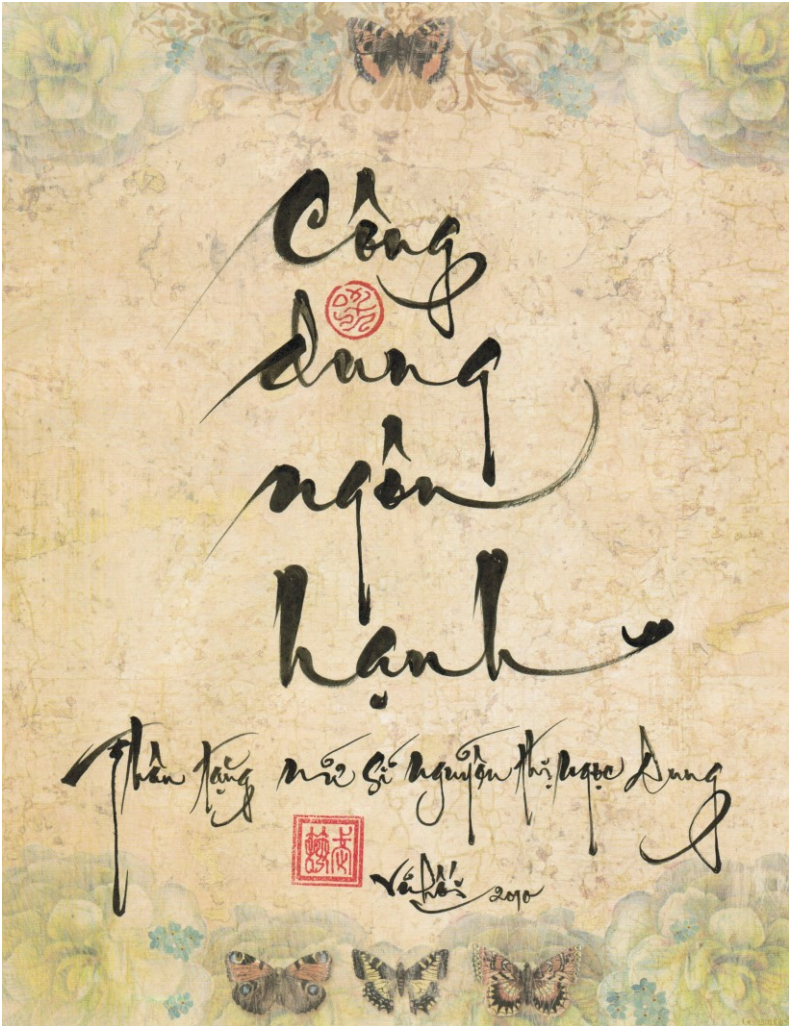 Công
dung
ngôn
hạnh
Thân tặng nữ sĩ Nguyễn Thị Ngọc Dung
2010